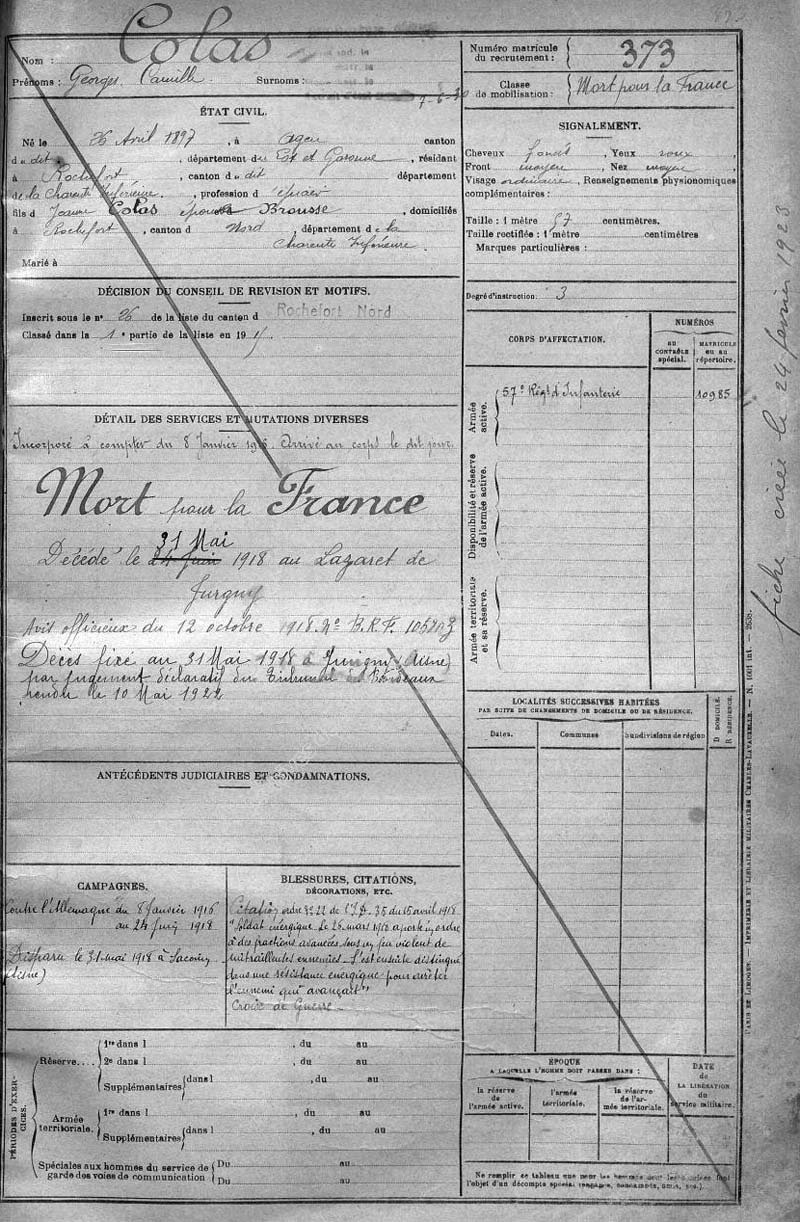 Nom :
Colas
Prénoms : Georges Camille Surnoms :
ÉTAT CIVIL.
Né le 26 Avril 1897, à Agen canton
du dit, département du Lot et Garonne, résidant
à Rochefort, canton du dit département
de la Charente Inférieure, profession d'
fils d Jeanne Colas épouse Brousse, domiciliés
à Rochefort, canton d Nord, département de la
Charente Inférieure.
Marié à
DÉCISION DU CONSEIL DE REVISION ET MOTIFS.
Inscrit sous le n° 26 de la liste du canton d Rochefort Nord
Classé dans la 1e partie de la liste en 19
DÉTAIL DES SERVICES ET MUTATIONS DIVERSES
Incorporé à compter du 8 Janvier 1916. Arrivé au corps le dit jour.
Mort pour la France
31 Mai
Décédé le 24 Juin 1918 au Lazaret de
Avis officieux du 12 octobre 1918. N° B.R.F.
Décès fixé au 31 Mai 1918 à Juvigny (Aisne)
par jugement déclaratif du Tribunal de Bordeaux
rendu le 10 Mai 1922
ANTÉCÉDENTS JUDICIAIRES ET CONDAMNATIONS.
CAMPAGNES.
Contre l'Allemagne du 8 Janvier 1916
au 24 Juin 1918
Disparu le 31 mai 1918 à
(Aisne)
BLESSURES, CITATIONS,
DÉCORATIONS, ETC.
Citation ordre 3222 de l'I.D. 35 du 15 avril 1918
"Soldat énergique. Le 26 mars 1918 a porté un ordre
à des fractions avancées sous un feu violent de
mitrailleuses ennemies. S'est ensuite distingué
dans une résistance énergique pour arrêter
l'ennemi qui avançait"
Croix de Guerre
PÉRIODES D'EXERCICES.
Réserve....
1re dans l , du au
2e dans l , du au
Supplémentaires dans l , du au
Armée
territoriale.
1re dans l , du au
Supplémentaires dans l , du au
Spéciales aux hommes du service de
garde des voies de communication
Du au
Du au
Numéro matricule
du recrutement :
373
Classe
de mobilisation :
Mort pour la France
SIGNALEMENT.
Cheveux foncés, Yeux roux,
Front moyen, Nez moyen,
Visage ordinaire, Renseignements physionomiques
complémentaires :
Taille : 1 mètre 57 centimètres.
Taille rectifiée : 1 mètre centimètres
Marques particulières :
Degré d'instruction : 3
CORPS D'AFFECTATION.
NUMÉROS
au
CONTRÔLE
spécial.
MATRICULE
ou au
répertoire.
Armée
active.
57e Régt d'Infanterie
10985
Disponibilité et réserve
de l'armée active.
Armée territoriale
et sa réserve.
LOCALITÉS SUCCESSIVES HABITÉES
PAR SUITE DE CHANGEMENTS DE DOMICILE OU DE RÉSIDENCE.
Dates.
Communes
Subdivisions de région
D DOMICILE.
R RÉSIDENCE.
ÉPOQUE
A LAQUELLE L'HOMME DOIT PASSER DANS :
la réserve
de
l'armée active.
l'armée
territoriale.
la réserve
de l'ar-
mée territoriale.
DATE
de
LA LIBÉRATION
du
service militaire.
Ne remplir ce tableau que pour les hommes
l'objet d'un décompte spécial
fiche créée le 24 février 1923
PARIS ET LIMOGES. — IMPRIMERIE ET LIBRAIRIE MILITAIRES CHARLES-LAVAUZELLE. — N. 1001 int. — 2638.